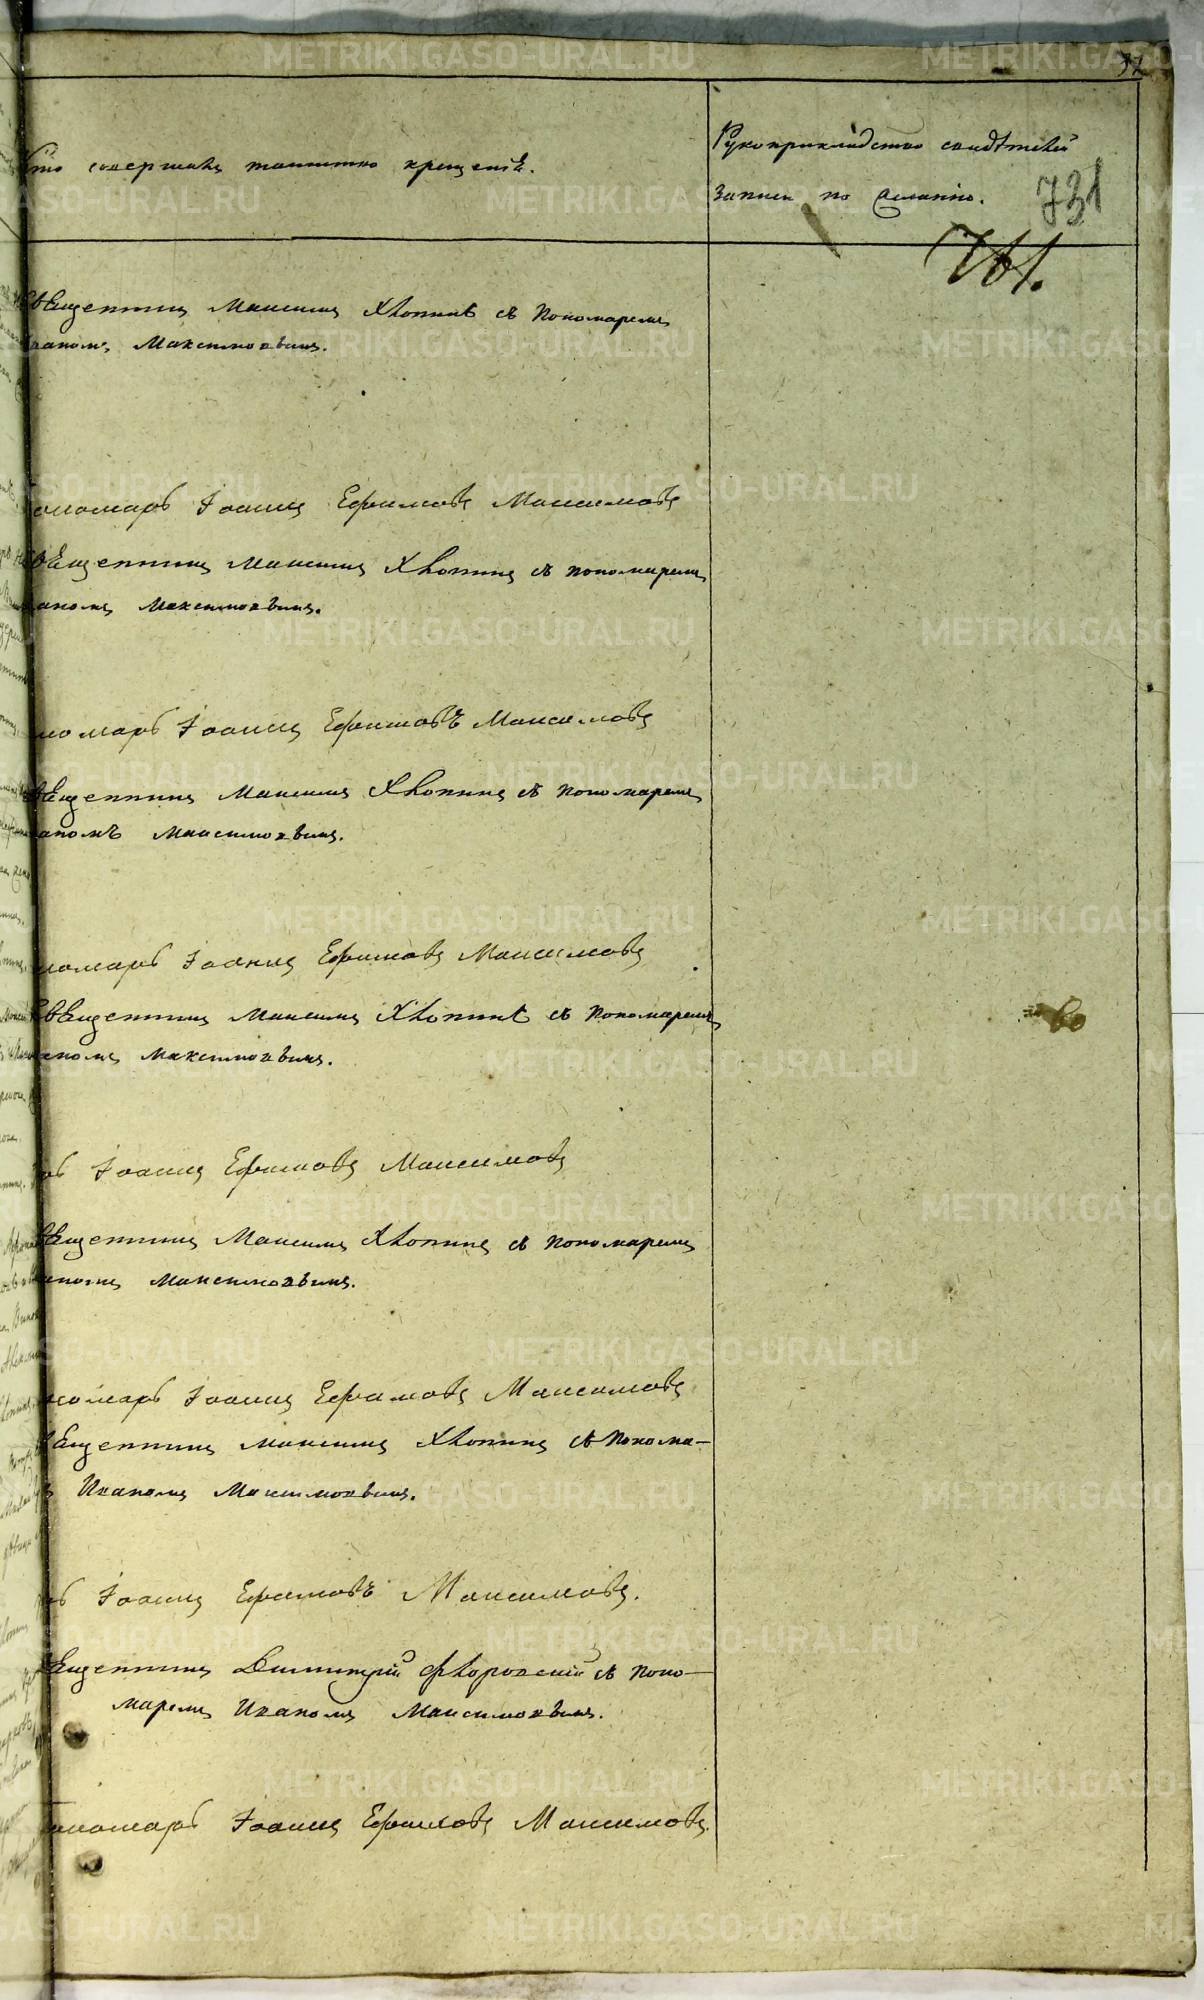 37
Кто совершалъ таинство крещенія.
Рукоприкладство свидѣтелей
записи по желанію.
731
761.
Священникъ Максимъ Хлопинъ съ Пономаремъ
Іваномъ Максимовымъ.
Пономарь Іоаннъ Ефимовъ Максимовъ
Священникъ Максимъ Хлопинъ съ пономаремъ
Іваномъ Максимовымъ.
Пономарь Іоаннъ Ефимовъ Максимовъ
Священникъ Максимъ Хлопинъ съ пономаремъ
Іваномъ Максимовымъ.
Пономарь Іоаннъ Ефимовъ Максимовъ
Священникъ Максимъ Хлопинъ съ Пономаремъ
Іваномъ Максимовымъ.
Іоаннъ Ефимовъ Максимовъ
Священникъ Максимъ Хлопинъ съ пономаремъ
Іваномъ Максимовымъ.
Пономарь Іоаннъ Ефимовъ Максимовъ
Священникъ Максимъ Хлопинъ съ Понома-
Иваномъ Максимовымъ.
Іоаннъ Ефимовъ Максимовъ.
Священникъ Димитрій Флоровскій съ Поно-
маремъ Иваномъ Максимовымъ.
Пономарь Іоаннъ Ефимовъ Максимовъ.
METRIKI.GASO-URAL.RU